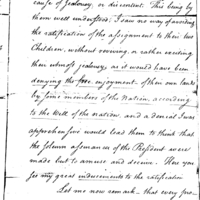 cause of jealousy, or discontent. This being by
them well understood; I saw no way of avoiding
the ratification of the assignment to their two
Children, without reviving, or rather exciting
their utmost jealousy, as it would have been
denying the free enjoyment of their own lands
by joint members of the Nation, according
to the Will of the nation, and a denial I was
apprehensive would lead them to think that
the solemn assurances of the President were
made but to amuse and deceive. Here you
see my great inducements to the ratification
Let me now remark, that every pro